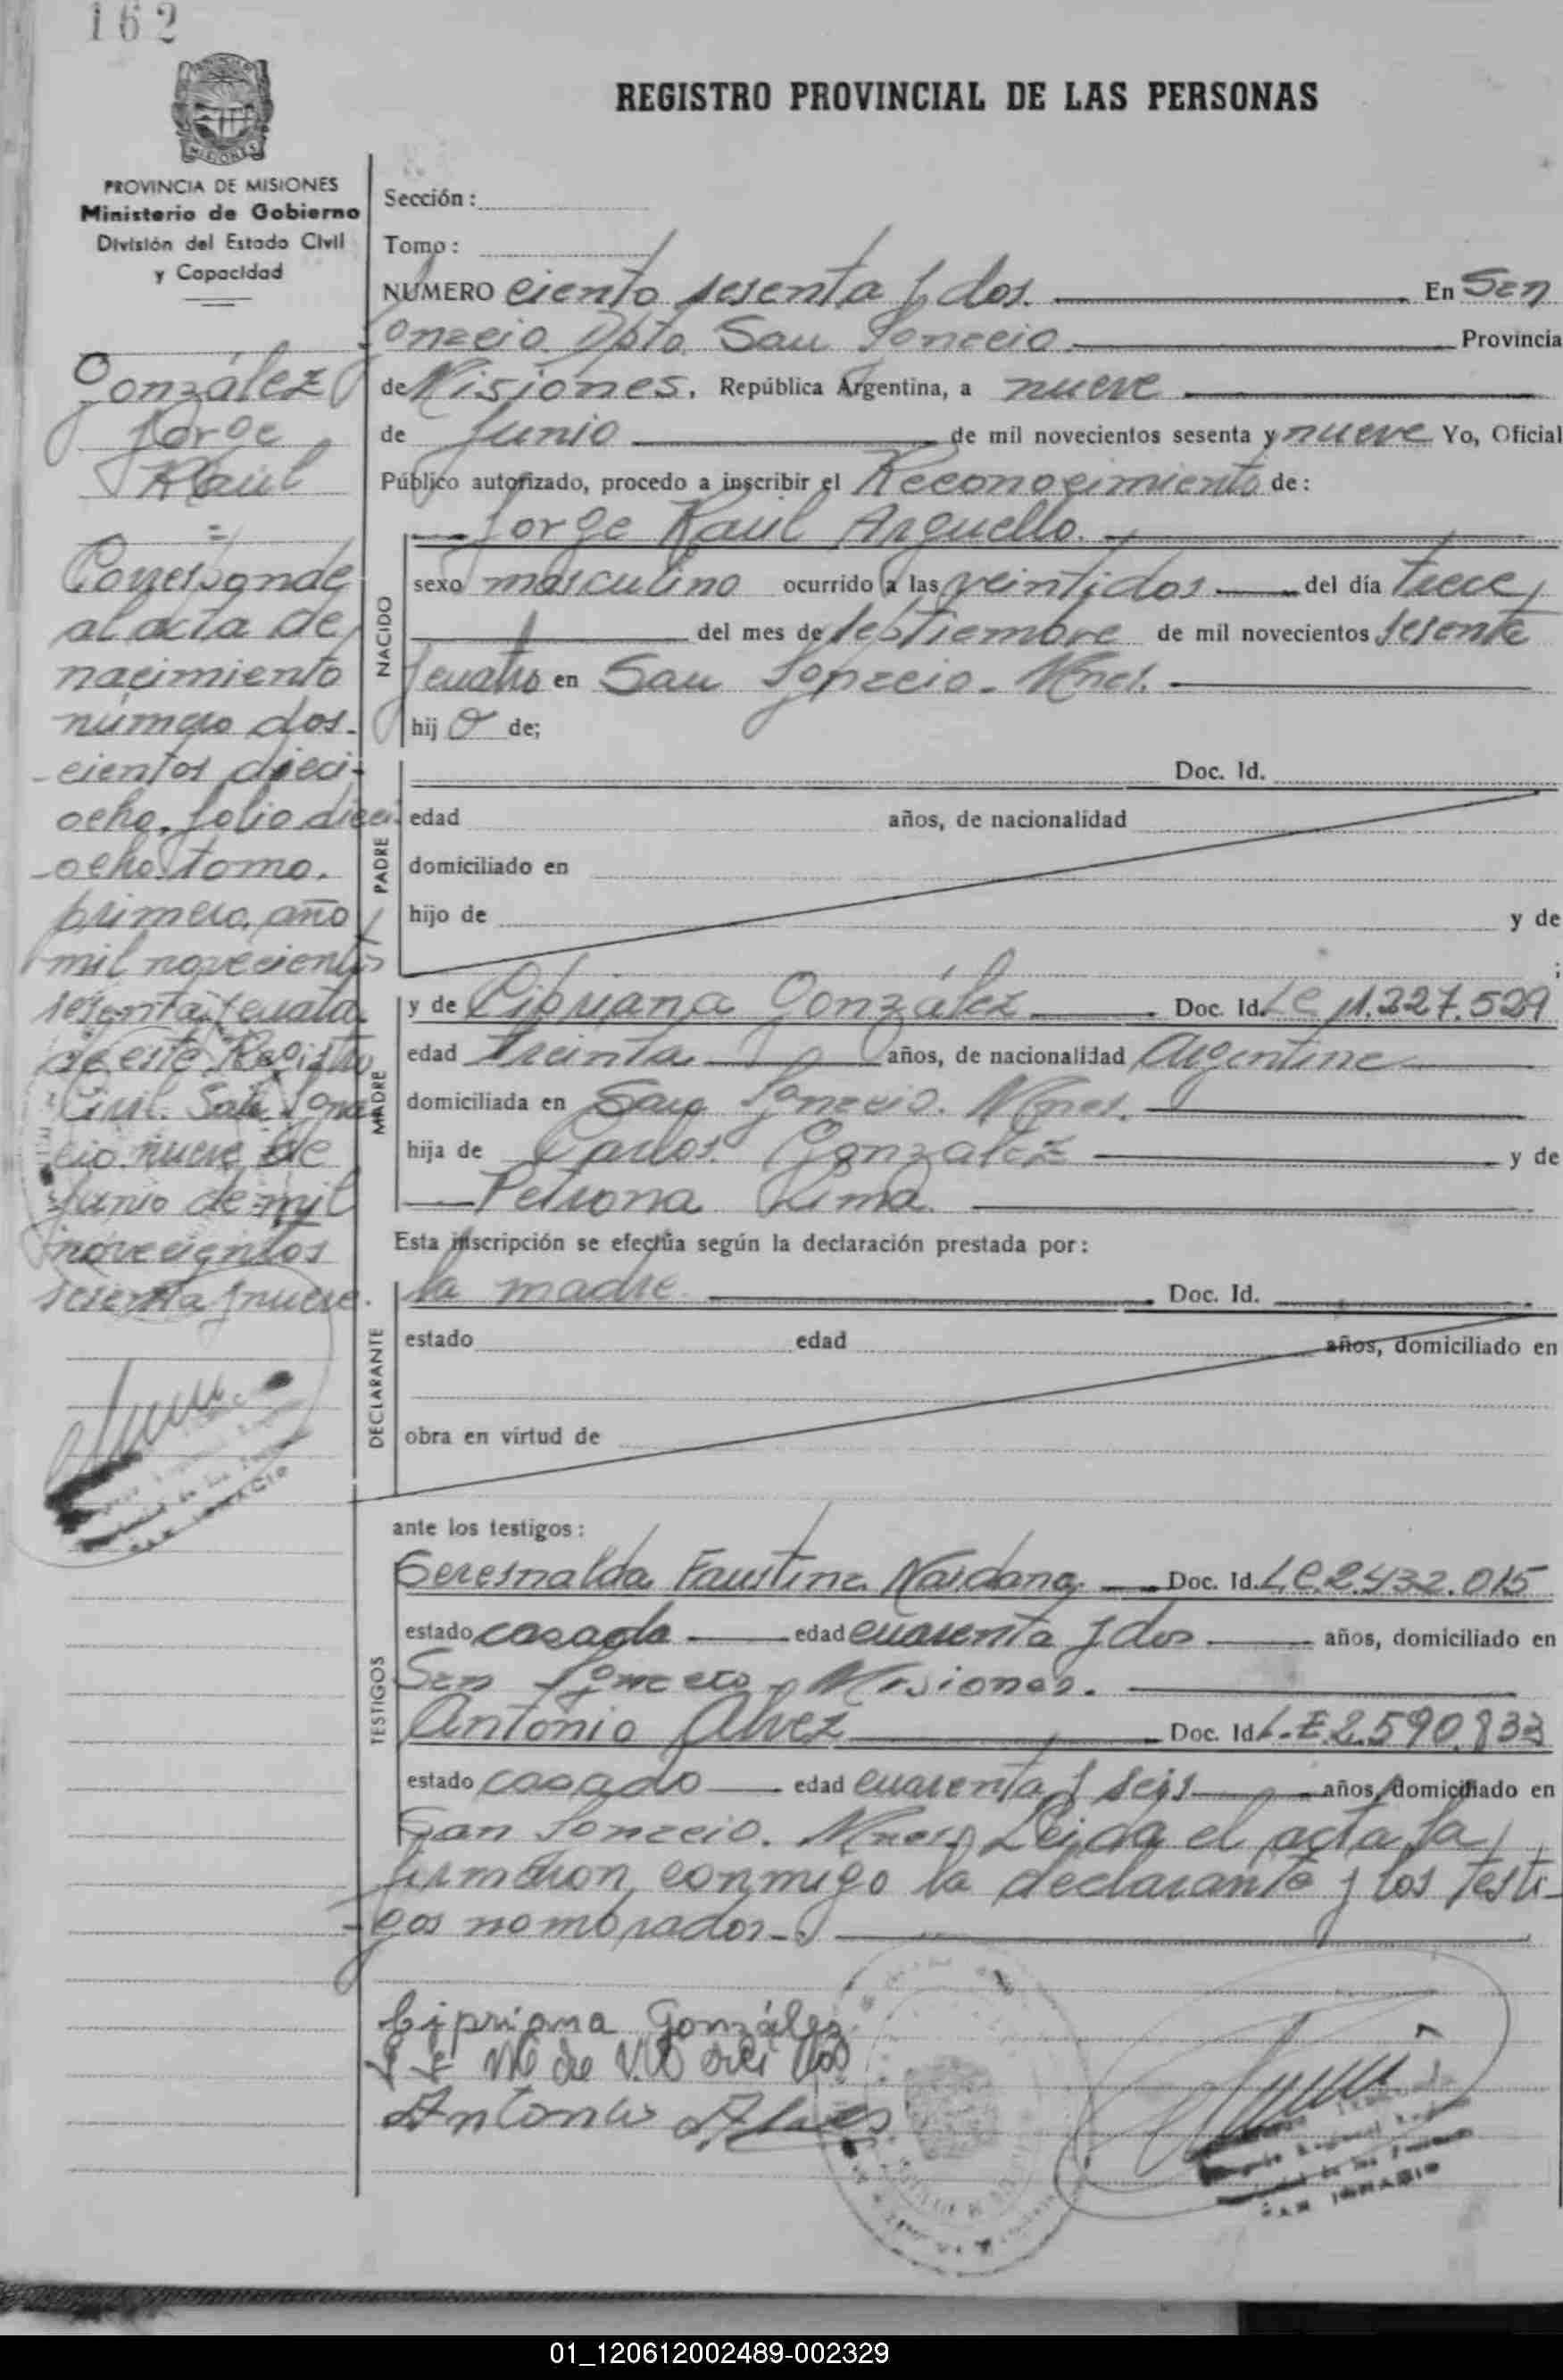 162
REGISTRO PROVINCIAL DE LAS PERSONAS
MISIONES
PROVINCIA DE MISIONES
Ministerio de Gobierno
División del Estado Civil
y Capacidad
González
Jorge
Raúl
=
Corresponde
al acta de
nacimiento
número dos-
-cientos dieci-
ocho, folio dieci
-ocho tomo.
primero, año
mil novecientos
sesenta y cuatro
de este Registro
Civil. San Igna
cio nueve de
Junio de mil
novecientos
sesenta y nueve.
SAN IGNACIO
Sección:
Tomo:
NUMERO ciento sesenta y dos. En San
Ignacio Dpto. San Ignacio Provincia
de Misiones. República Argentina, a nueve
de Junio de mil novecientos sesenta y nueve Yo, Oficial
Público autorizado, procedo a inscribir el Reconocimiento de:
NACIDO
Jorge Raúl Arguello.
sexo masculino ocurrido a las veintidos del día trece
del mes de septiembre de mil novecientos sesenta
y cuatro en San Ignacio. Mnes.
hij o de;
PADRE
Doc. Id.
edad años, de nacionalidad
domiciliado en
hijo de y de
;
MADRE
y de Cipriana González Doc. Id. LC 11.327.529
edad treinta años, de nacionalidad Argentina
domiciliada en San Ignacio. Mnes.
hija de Carlos González y de
Petrona Lima.
Esta inscripción se efectúa según la declaración prestada por:
DECLARANTE
la madre Doc. Id.
estado edad años, domiciliado en
obra en virtud de
ante los testigos:
TESTIGOS
Faustina Doc. Id. L.C. 2.432.015
estado casada edad cuarenta y dos años, domiciliado en
San Ignacio - Misiones.
Antonio Alvez Doc. Id L.E 2.590.833
estado casado edad cuarenta y seis años, domiciliado en
San Ignacio. Mnes. Leida el acta la
firmaron conmigo la declarante y los testi-
-gos nombrados.-
Cipriana González
Antonio Alves
SAN IGNACIO
01_120612002489-002329